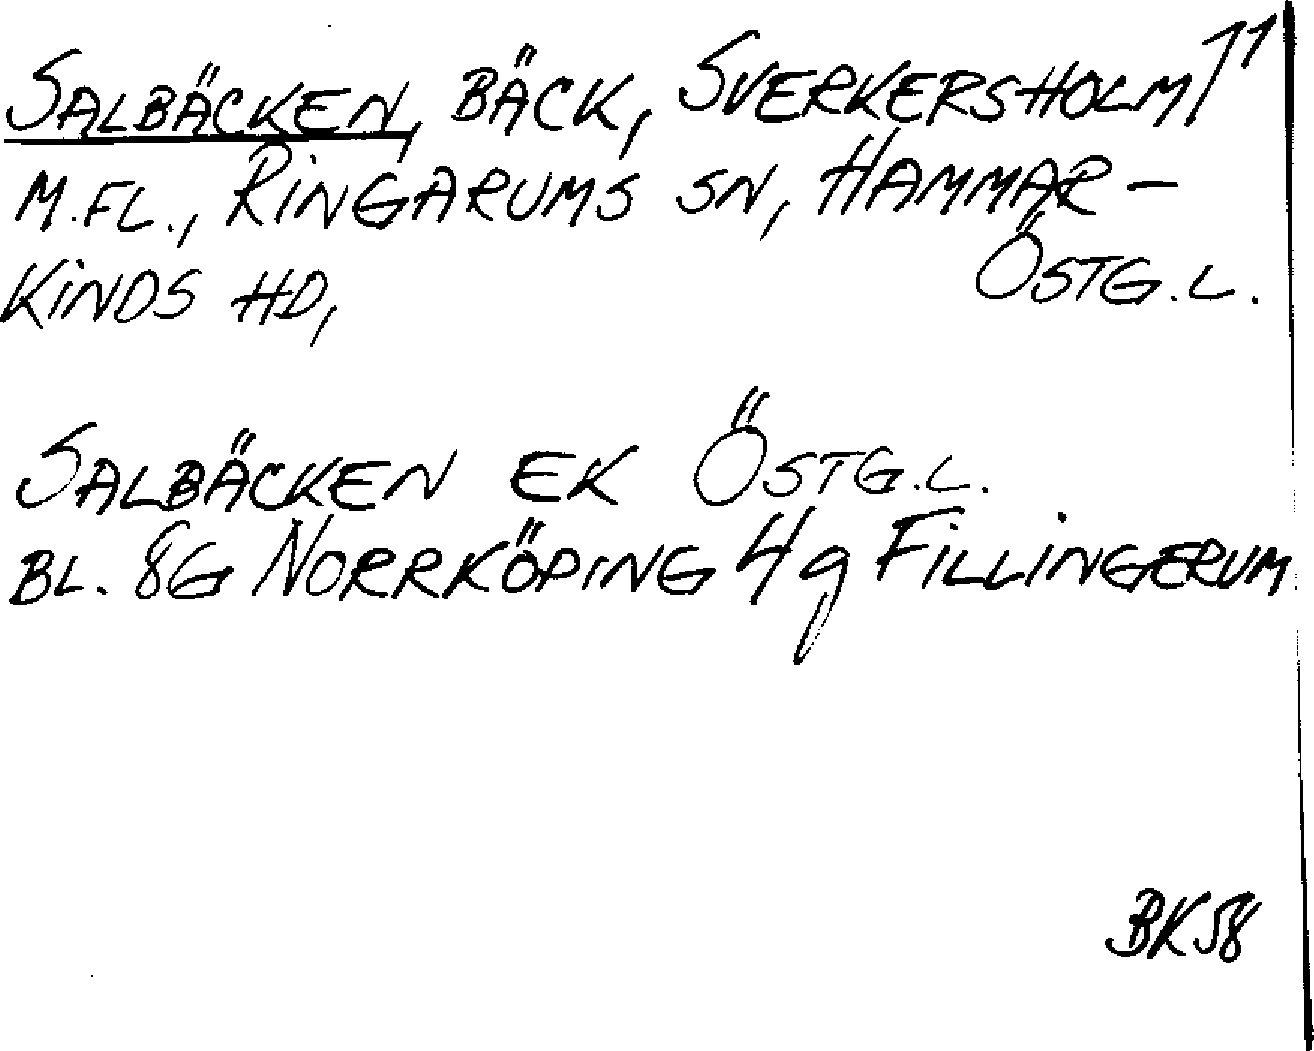 SALBÄCKEN, BÄCK, SVERKERSHOLM 11
M.FL., RINGARUMS SN, HAMMAR-
KINDS HD, ÖSTG.L.
SALBÄCKEN EK ÖSTG.L.
BL. 8G NORRKÖPING 4g FILLINGERUM
BK58